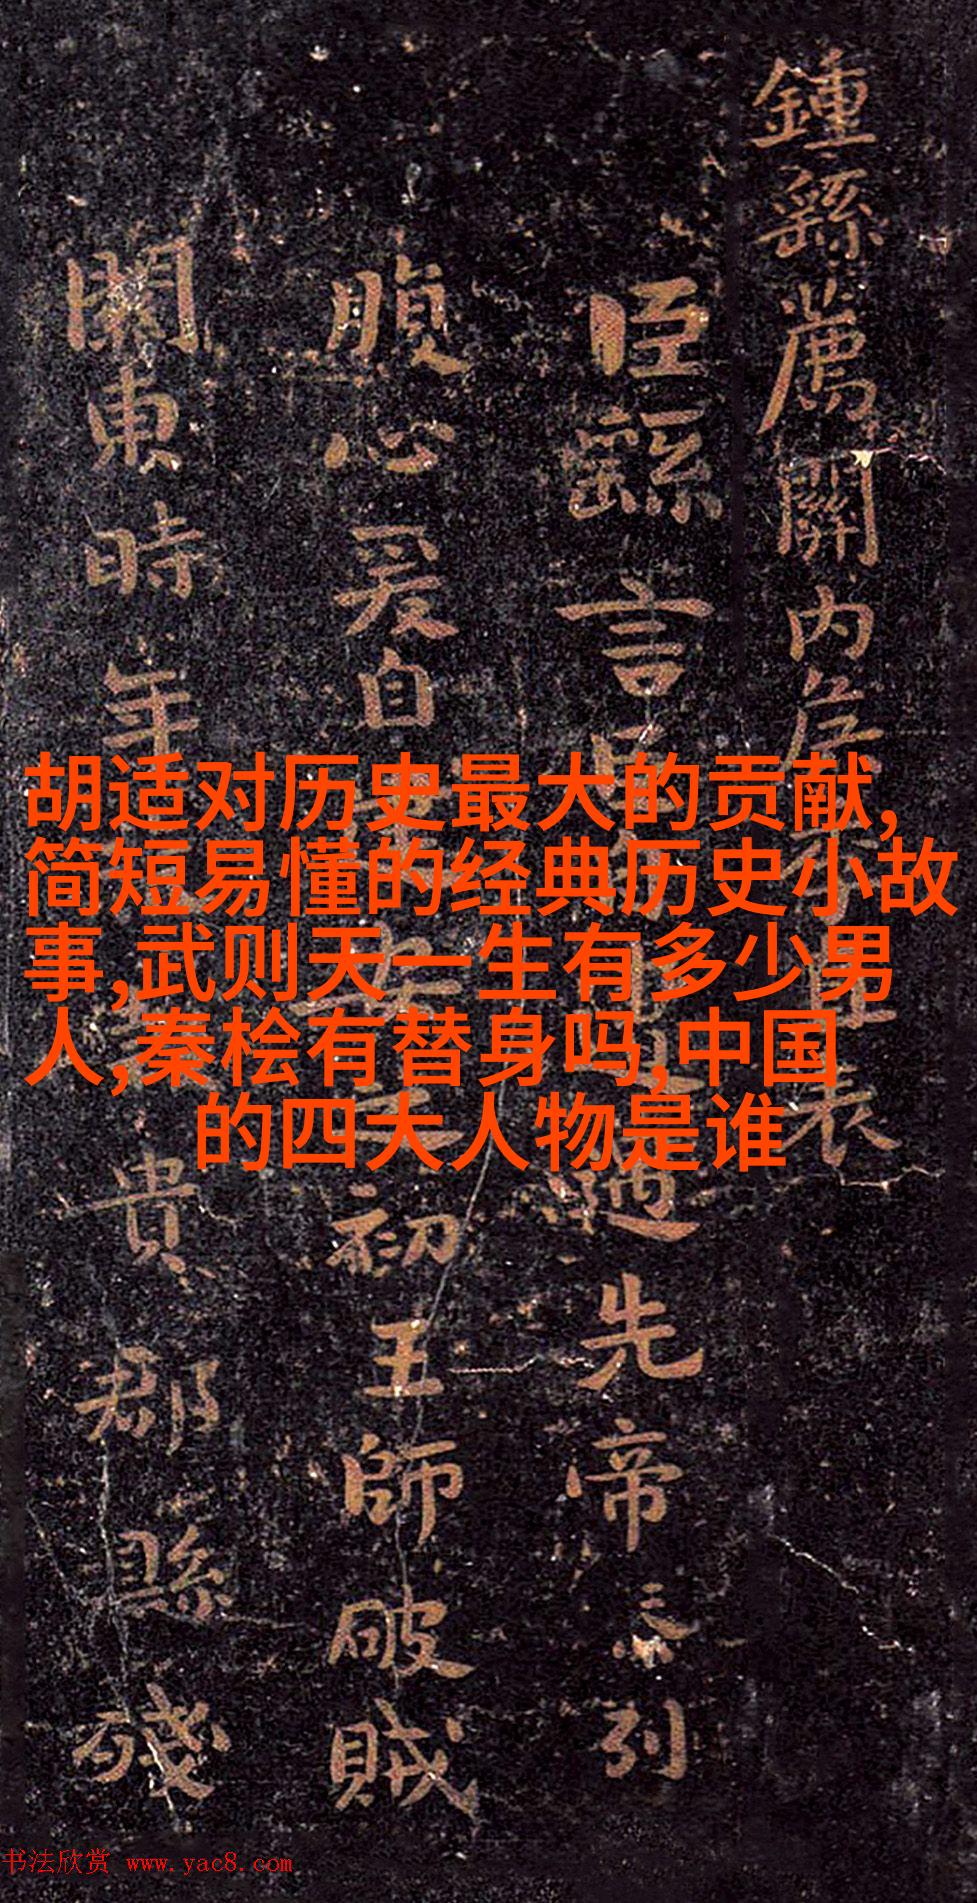 鍾繇薦關內侯直表
臣繇言臣遇先帝忝列
腹心爰自安之初王師破賊
關東時年貴郡縣殘
胡适对历史最大的贡献,
简短易懂的经典历史小故
事,武则天一生有多少男
人,秦桧有替身吗,中国
的四大人物是谁
书法欣赏 www.yac8.com